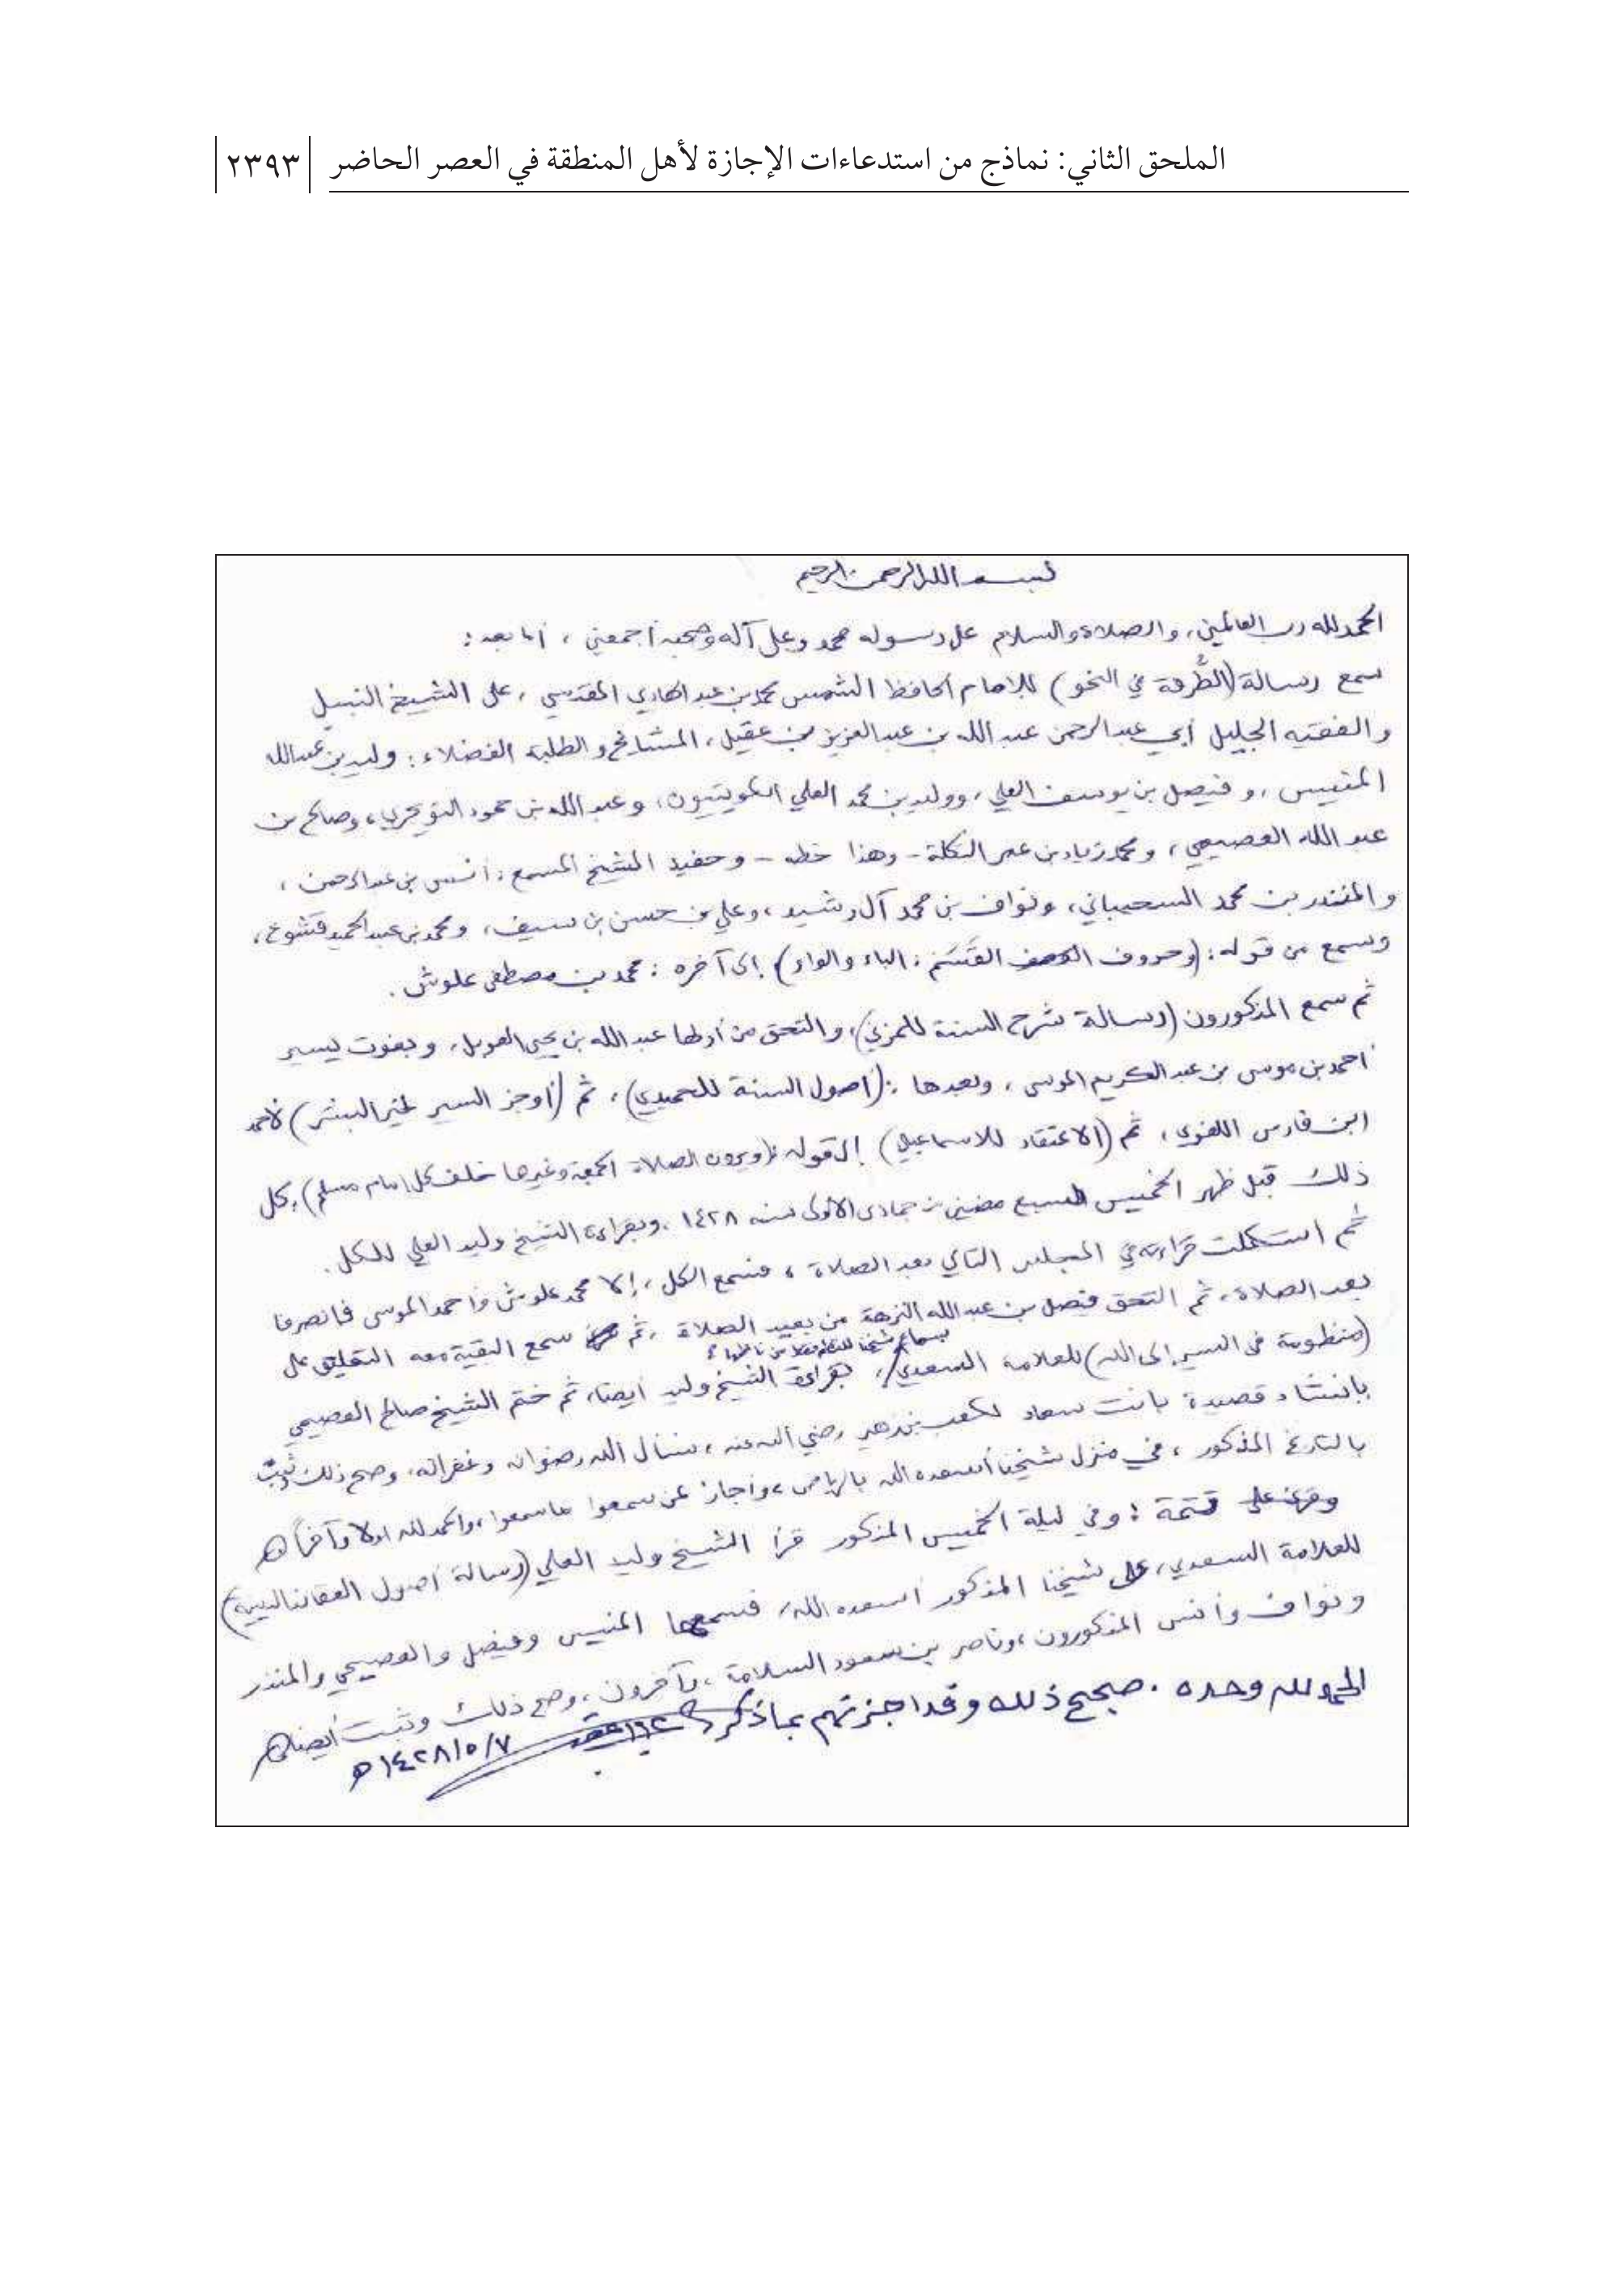 الملحق الثاني: نماذج من استدعاءات الإجازة لأهل المنطقة في العصر الحاضر ٢٣٩٣
بسم الله الرحمن الرحيم
الحمد لله رب العالمين، والصلاة والسلام على رسوله محمد وعلى آله وصحبه أجمعين، أما بعد:
سمع رسالة (الطُّرفة في النحو) للإمام الحافظ الشمس محمد بن عبد الهادي المقدسي، على الشيخ النبيل
والفقيه الجليل أبي عبد الرحمن عبد الله بن عبد العزيز بن عقيل، المشايخ والطلبة الفضلاء: وليد بن عبد الله
المنيس، وفيصل بن يوسف العلي، ووليد بن محمد العلي الكويتيون، وعبد الله بن حمود التويجري، وصالح بن
عبد الله العصيمي، ومحمد زياد بن عمر التكلة - وهذا خطه - وحفيد الشيخ المسمع: أنس بن عبد الرحمن،
والمنذر بن محمد السحيباني، ونواف بن محمد آل رشيد، وعلي بن حسن بن سيف، ومحمد بن عبد الحميد قشوع،
وسمع من قوله: (وحروف القَسَم: الباء والواو) إلى آخره: محمد بن مصطفى علوش.
ثم سمع المذكورون (رسالة شرح السنة للمزني)، والتحق من أولها عبد الله بن يحيى العوبل، وبفوت يسير
أحمد بن موسى بن عبد الكريم الموسى، وبعدها: (أصول السنة للحميدي)، ثم (أوجز السير لخير البشر) لأحمد
ابن فارس اللغوي، ثم (الاعتقاد للإسماعيلي) إلى قوله: (ويرون الصلاة الجمعة وغيرها خلف كل إمام مسلم)، كل
ذلك قبل ظهر الخميس لسبع مضين من جمادى الأولى سنة ١٤٢٨، وبقراءة الشيخ وليد العلي للكل.
ثم استكملت قراءته في المجلس التالي بعد الصلاة، فسمع الكل، إلا محمد علوش وأحمد الموسى فانصرفا
بعد الصلاة، ثم التحق فيصل بن عبد الله النزهة من بعيد الصلاة، ثم سمع البقية معه التعليق على
(منظومة في السير إلى الله) للعلامة السعدي، بقراءة الشيخ وليد أيضا، ثم ختم الشيخ صالح العصيمي
بسماع شيخنا للنظم فقط من ناظمها
بإنشاد قصيدة بانت سعاد لكعب بن زهير رضي الله عنه، نسأل الله رضوانه وغفرانه، وصح ذلك وثبت
بالتاريخ المذكور، في منزل شيخنا أسعده الله بالرياض، وأجاز من سمعوا ما سمعوا، والحمد لله أولا وآخراً اهـ
تتمة: وفي ليلة الخميس المذكور قرأ الشيخ وليد العلي (رسالة أصول العقائد الدينية)
للعلامة السعدي، على شيخنا المذكور أسعده الله، فسمعها المنيس وفيصل والعصيمي والمنذر
ونواف وأنس المذكورون، وناصر بن سعود السلامة، وآخرون، وصح ذلك وثبت أيضا اهـ
الحمد لله وحده. صحيح ذلك وقد أجزتهم بما ذكر
١٤٢٨/٥/٧ هـ